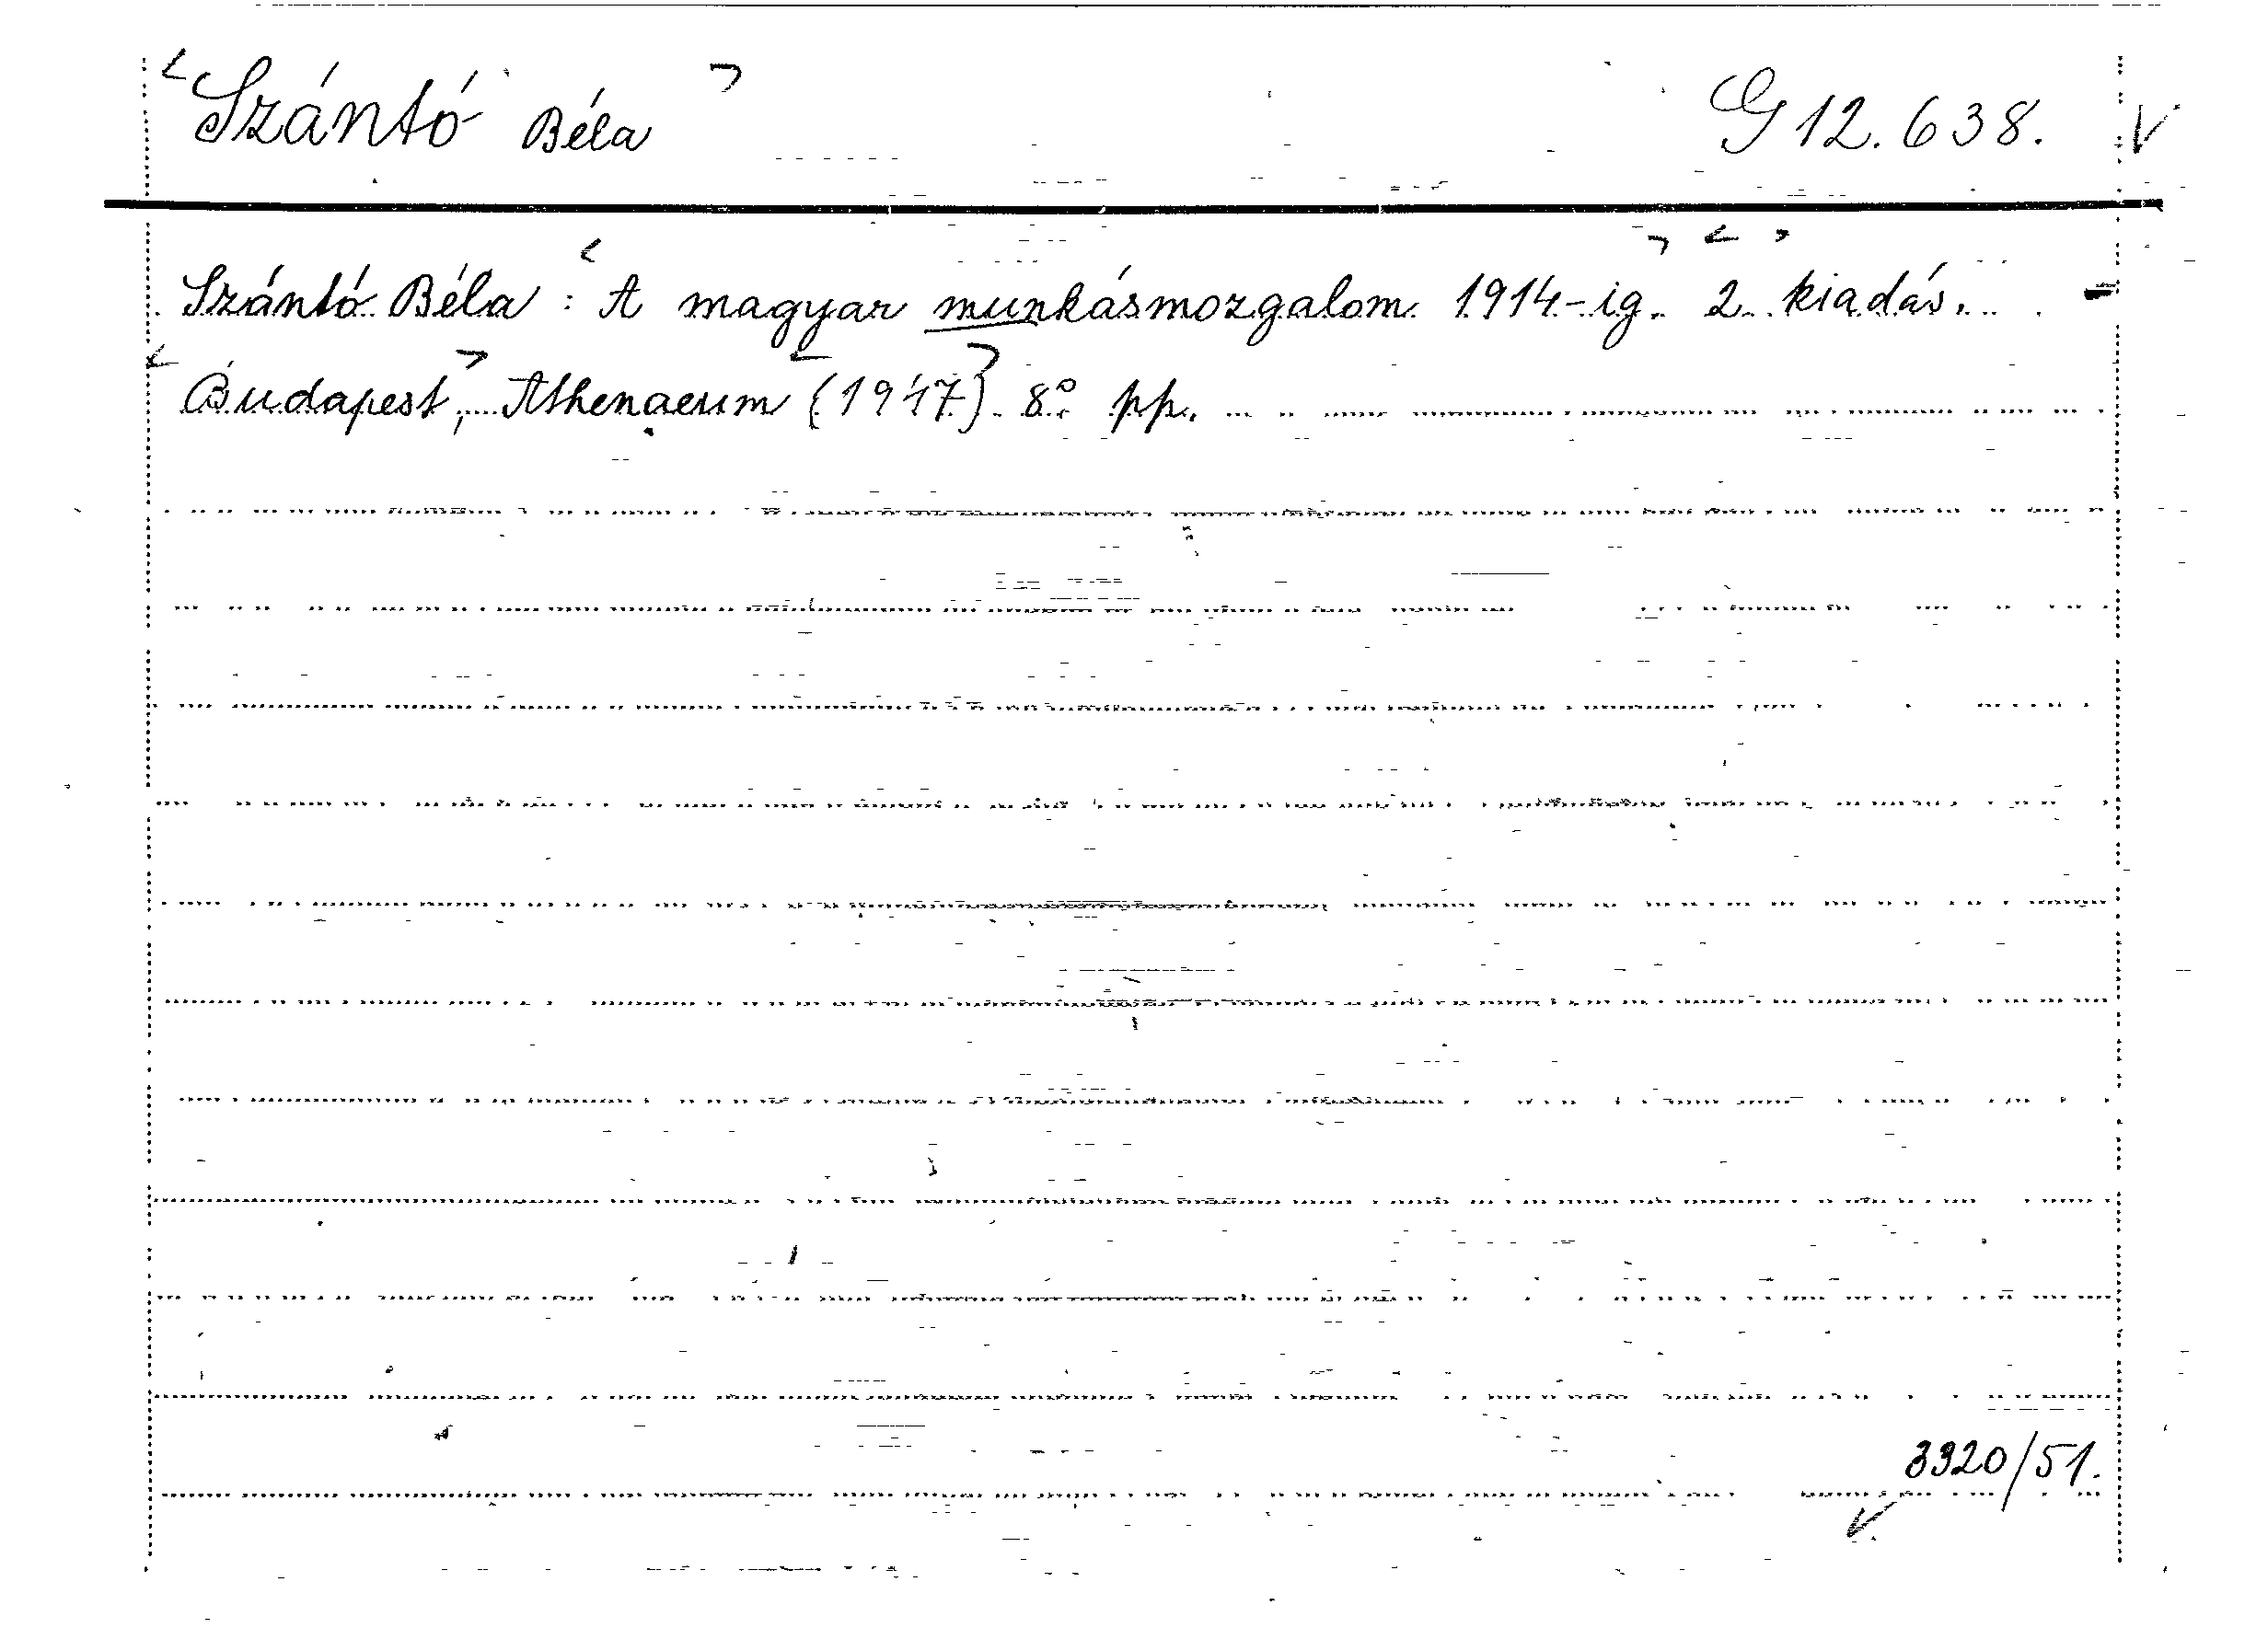 Szántó Béla G 12.638. V
Szántó Béla : A magyar munkásmozgalom 1914-ig. 2. kiadás. -
Budapest, Athenaeum (1947) 8° pp.
3920/51.